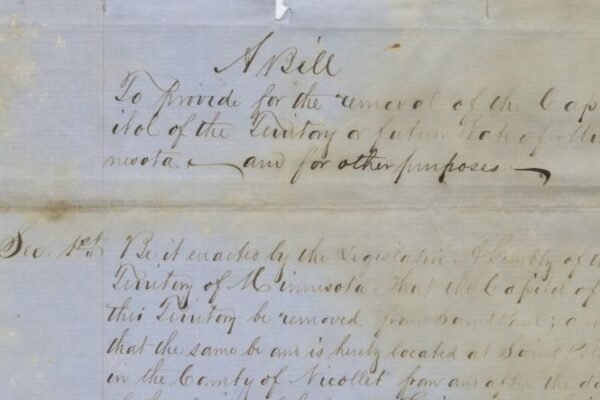 A Bill
To provide for the removal of the Cap
itol of the Territory or future State of Min
nesota and for other purposes
Sec. 1st Be it enacted by the Legislative Assembly of the
Territory of Minnesota, that the Capitol of
this Territory be removed from Saint Paul; and
that the same be and is hereby located at Saint Pe
in the County of Nicollet from and after the